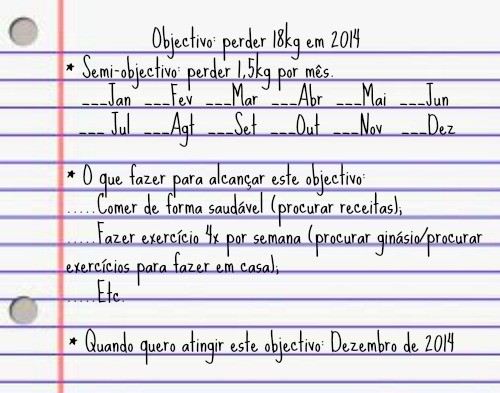 Objectivo: perder 18kg em 2014
* Semi-objectivo: perder 1,5kg por mês.
___Jan ___Fev ___Mar ___Abr ___Mai ___Jun
___ Jul ___Agt ___Set ___Out ___Nov ___Dez
* O que fazer para alcançar este objectivo:
.....Comer de forma saudável (procurar receitas);
.....Fazer exercício 4x por semana (procurar ginásio/procurar
exercícios para fazer em casa);
.....Etc.
* Quando quero atingir este objectivo: Dezembro de 2014